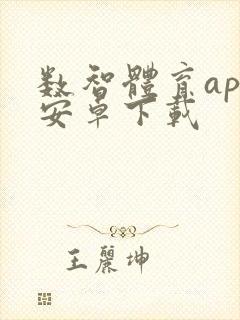 数智體育ap
安卓下載
王麗坤